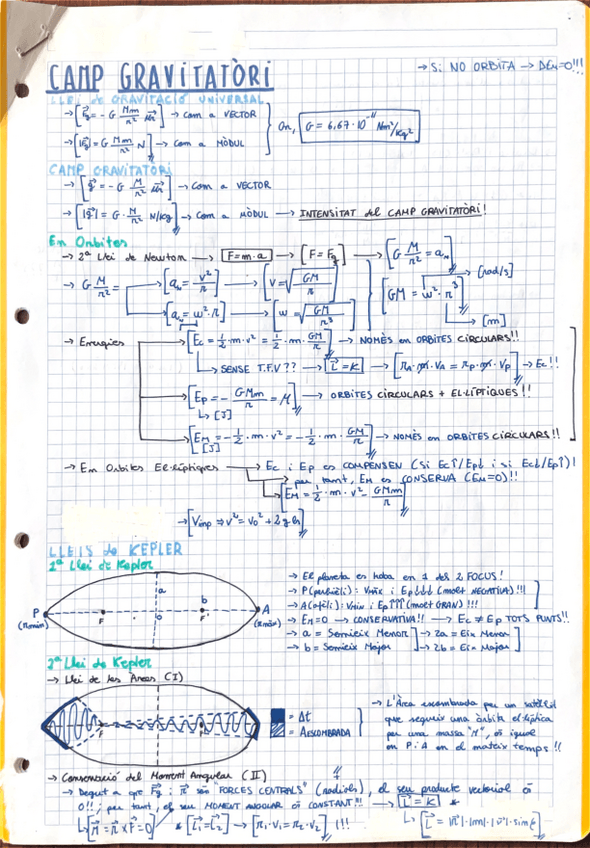 → Si NO ORBITA → ΔEm=0!!!
CAMP GRAVITATÒRI
LLEI de GRAVITACIÓ UNIVERSAL
→ [F⃗g = - G Mm/r² u⃗r] → Com a VECTOR
→ [|F⃗g| = G Mm/r² N] → Com a MÒDUL
On, G = 6,67·10⁻¹¹ Nm²/Kg²
CAMP GRAVITATÒRI
→ [g⃗ = - G M/r² u⃗r] → Com a VECTOR
→ [|g⃗| = G· M/r² N/Kg] → Com a MÒDUL → INTENSITAT del CAMP GRAVITATÒRI!
En Orbites
→ 2ª Llei de Newton → F=m·a → [F = Fg] → [G M/r² = an]
→ G M/r² = → [an = v²/r] → [v = √GM/r]
→ [an = w²·r] → [w = √GM/r³]
[GM = w²·r³] → [rad/s]
→ [m]
→ Energies → [Ec = 1/2·m·v² = 1/2·m· GM/r] → NOMÉS en ORBITES CIRCULARS!!
→ SENSE T.F.V?? → [L⃗ = K] → [rA·m·vA = rP·m·vP] → Ec!!
[Ep = - GMm/r = J] → ORBITES CIRCULARS + EL·LÍPTIQUES!!
↳ [J]
[EM = -1/2·m·v² = -1/2·m· GM/r] → NOMÉS en ORBITES CIRCULARS!!
[J]
→ En Orbites El·líptiques → Ec i Ep es COMPENSEN (Si Ec↑/Ep↓ i si Ec↓/Ep↑)!
per tant, EM es CONSERVA (EM=0)!!
[EM = 1/2·m·v² - GMm/r]
→ [Vimp ⇒ v² = v0² + 2gh]
LLEIS de KEPLER
1ª Llei de Kepler
a
b
P
(rmin)
F
O
F'
A
(rmàx)
→ El planeta es troba en 1 dels 2 FOCUS!
→ P(periheli): Vmàx i Ep↓↓↓ (molt NEGATIVA)!!!
→ A(afeli): Vmin i Ep↑↑↑ (molt GRAN)!!!
→ Em=0 → CONSERVATIVA!! → Ec ≠ Ep TOTS PUNTS!!
→ a = Semieix Menor → 2a = Eix Menor
→ b = Semieix Major → 2b = Eix Major
2ª Llei de Kepler
→ Llei de les Àrees (I)
F
= Δt
= AESCOMBRADA
→ L'Àrea escombrada per un satèl·lit
que segueix una òrbita el·líptica
per una massa "M", és igual
en P i A en el mateix temps!!
→ Conservació del Moment Angular (II)
→ Degut a que F⃗g i r⃗ són "FORCES CENTRALS" (radials), el seu producte vectorial és
0!!; per tant, el seu MOMENT ANGULAR és CONSTANT!!! → [L⃗ = K] *
↳ [M⃗ = r⃗ × F⃗ = 0] * [L⃗1 = L⃗2] → [r1·v1 = r2·v2] !!! ↳ [L⃗ = |r⃗|·|m|·|v⃗|·sin